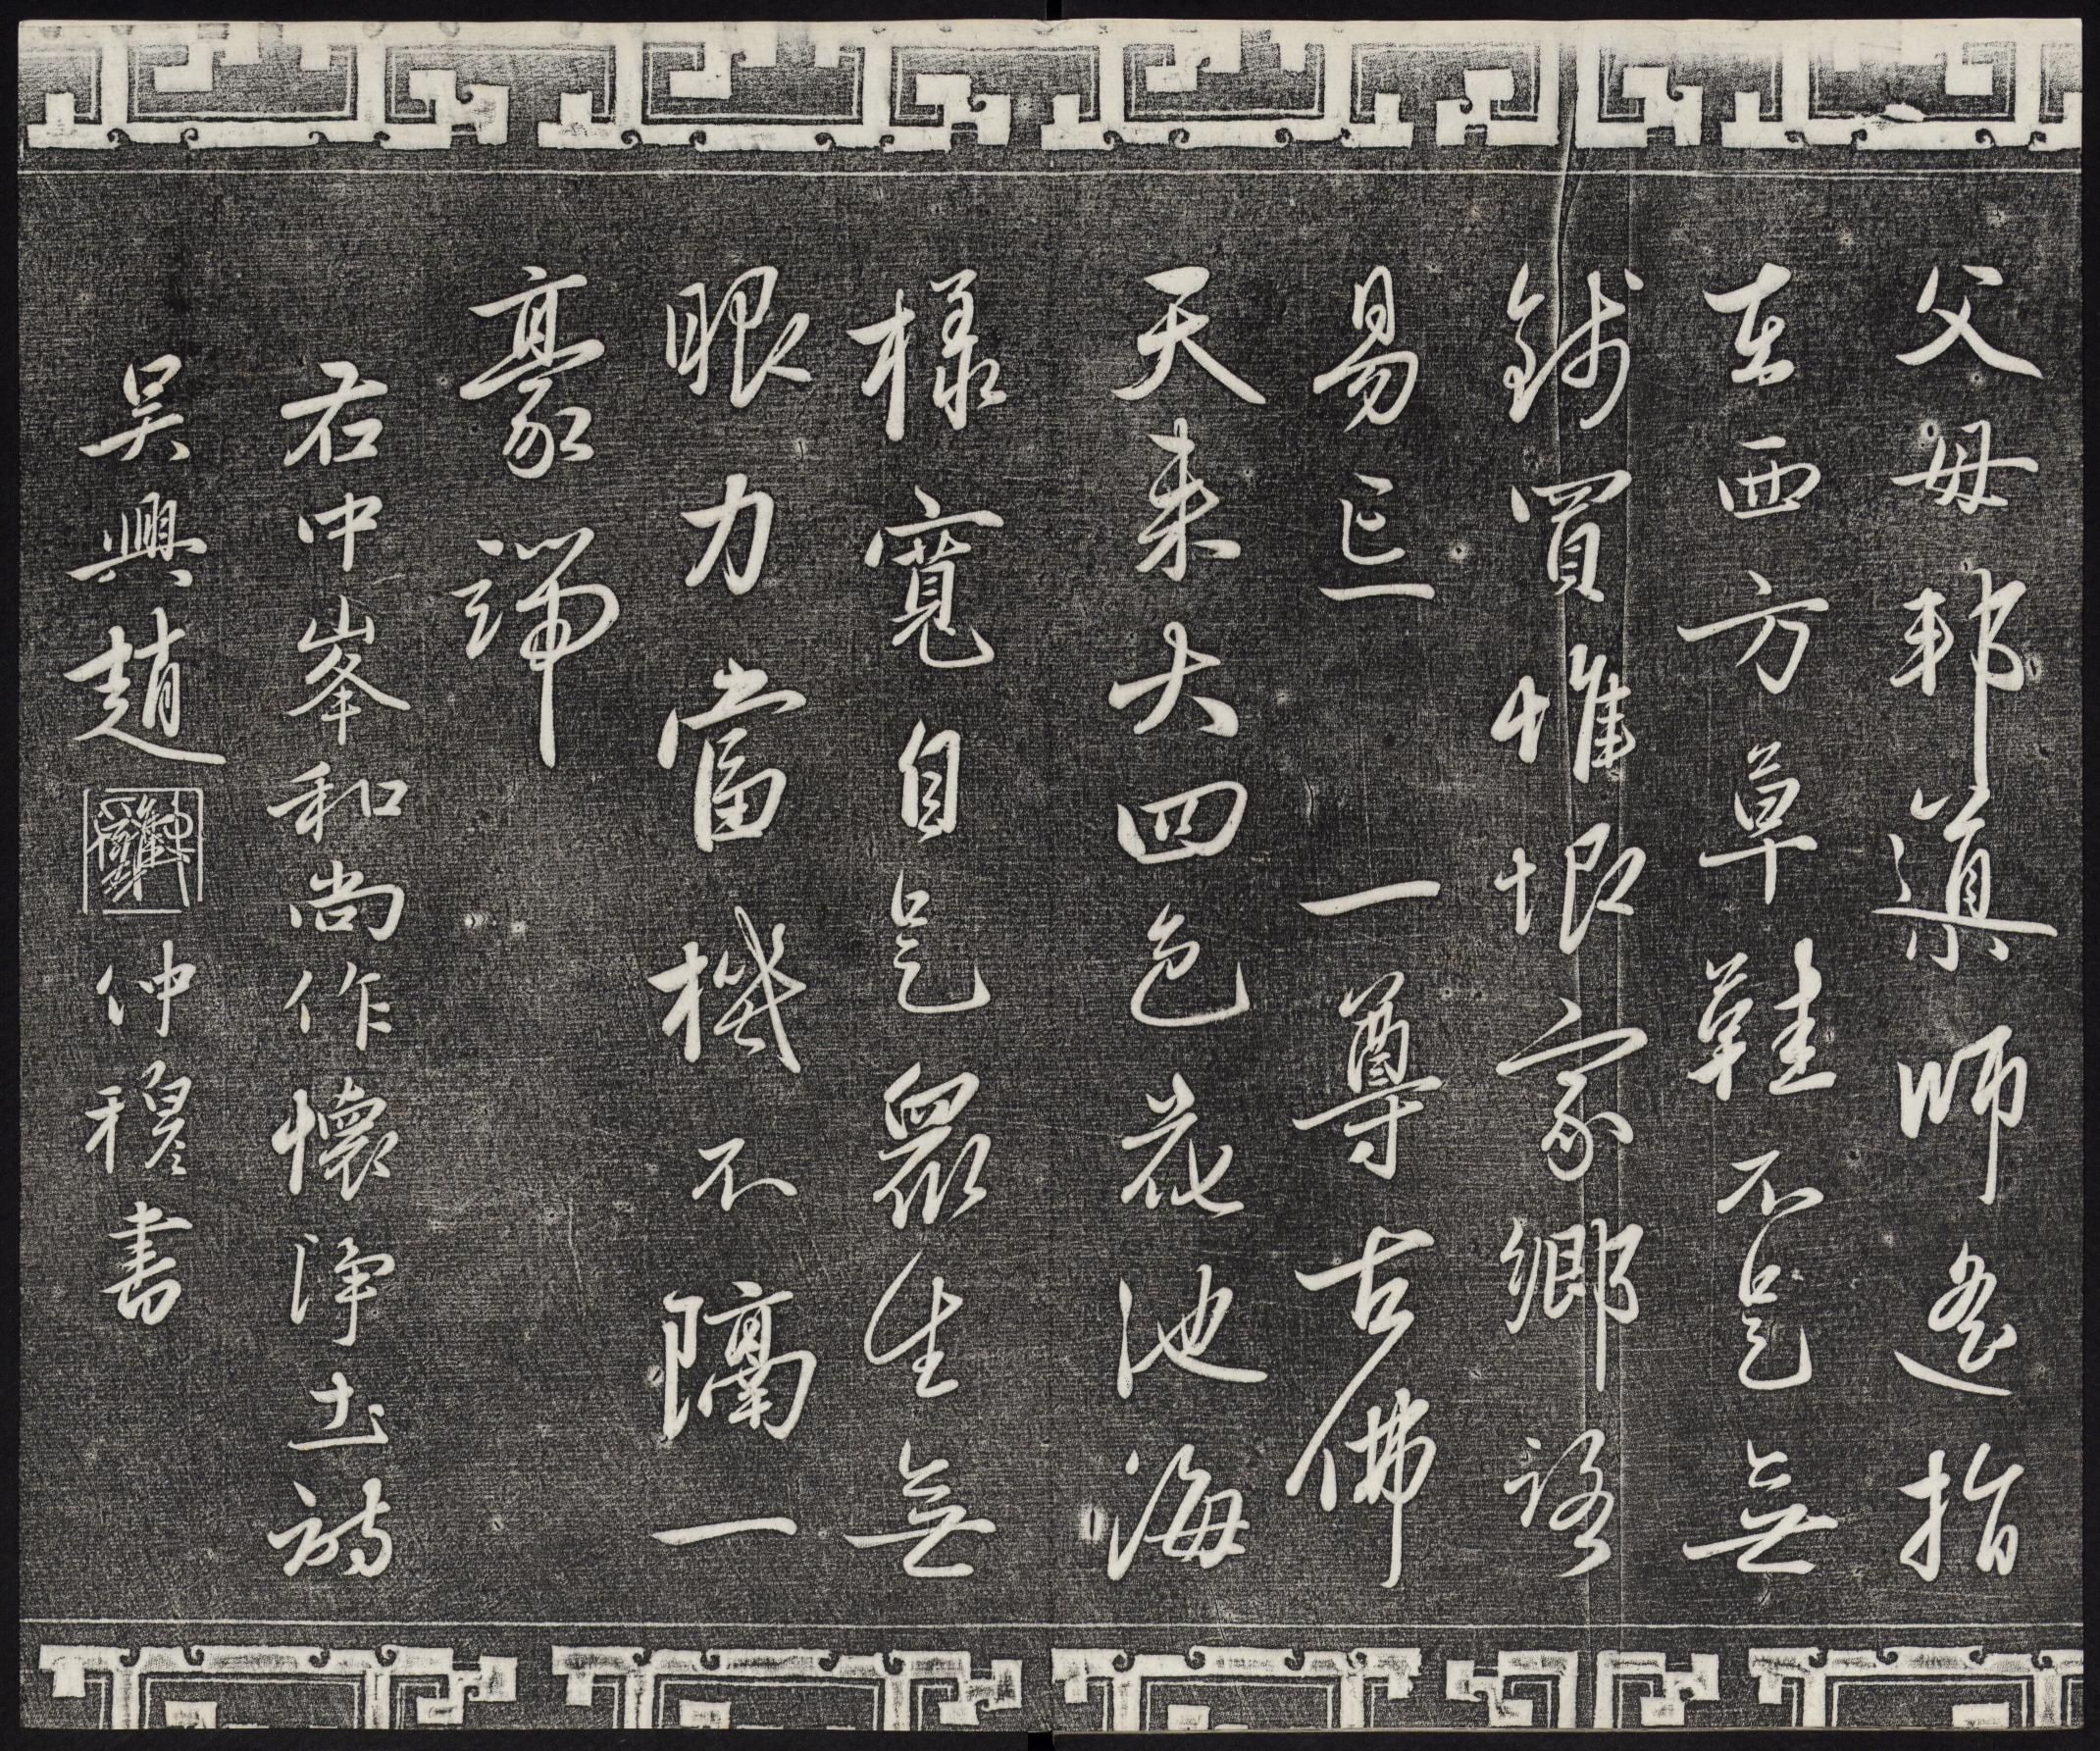 父母邦導師遙指
在西方草鞋不是無
錢買惟恨家鄉路
易忘　一尊古佛
天來大四色花池海
樣寬自是眾生無
眼力當機不隔一
豪端
右中峯和尚作懷淨土詩
吳興趙仲穆書